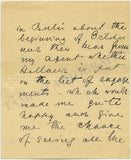 in Paris about the
beginning of October
and then hear from
my agent whether
Hellaus is put
on the list of engage
ments — which would
make me quite
happy and give
me the chance
of seeing all the